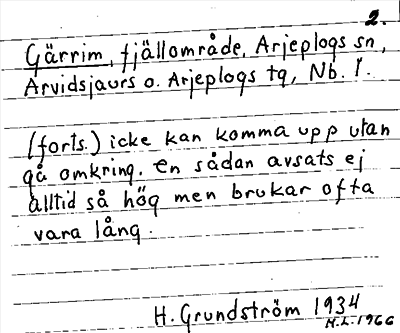 2.
Gärrim, fjällområde, Arjeplogs sn,
Arvidsjaurs o. Arjeplogs tg, Nb. l.
(forts.) icke kan komma upp utan
gå omkring. En sådan avsats ej
alltid så hög men brukar ofta
vara lång.
H. Grundström 1934
H.L. 1966